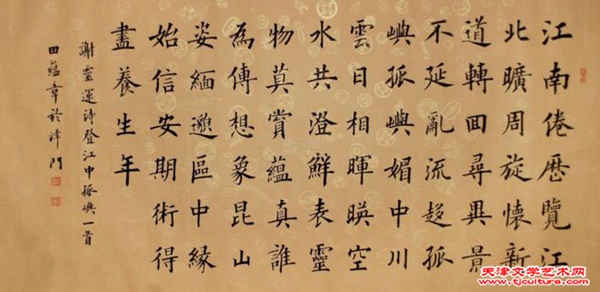 江南倦歷覽江
北曠周旋懷新
道轉回尋異景
不延亂流趨孤
嶼孤嶼媚中川
雲日相暉暎空
水共澄鮮表靈
物莫賞蘊真誰
為傳想象昆山
姿緬邈區中緣
始信安期術得
盡養生年
謝靈運詩登江中孤嶼一首
田蘊章於津門
天津文学艺术网
www.tjculture.com